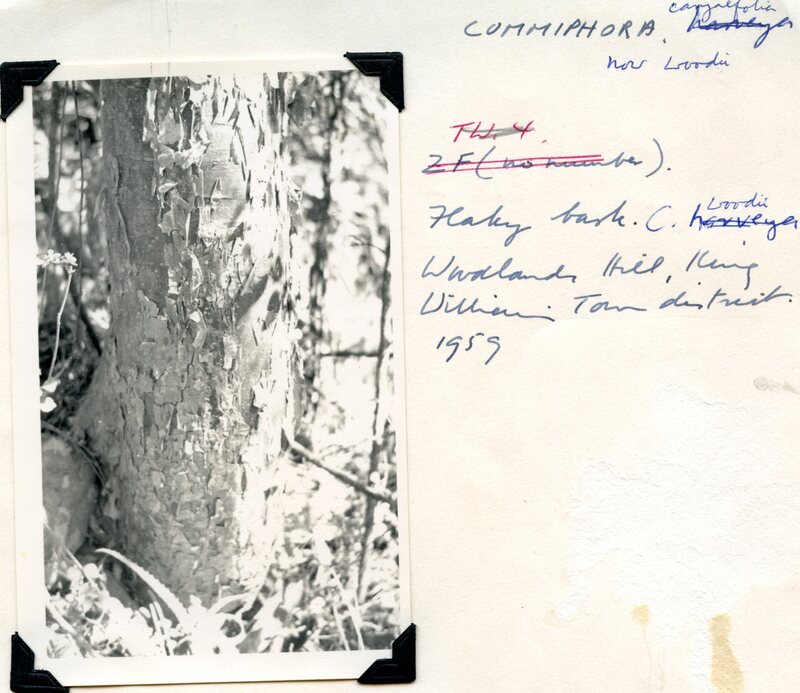 caryaefolia
COMMIPHORA. harveyer
now Woodii
TW. 4.
ZF (no number).
Woodii
Flaky bark. C. harveyer
Woodlands Hill, King
William Town district.
1959